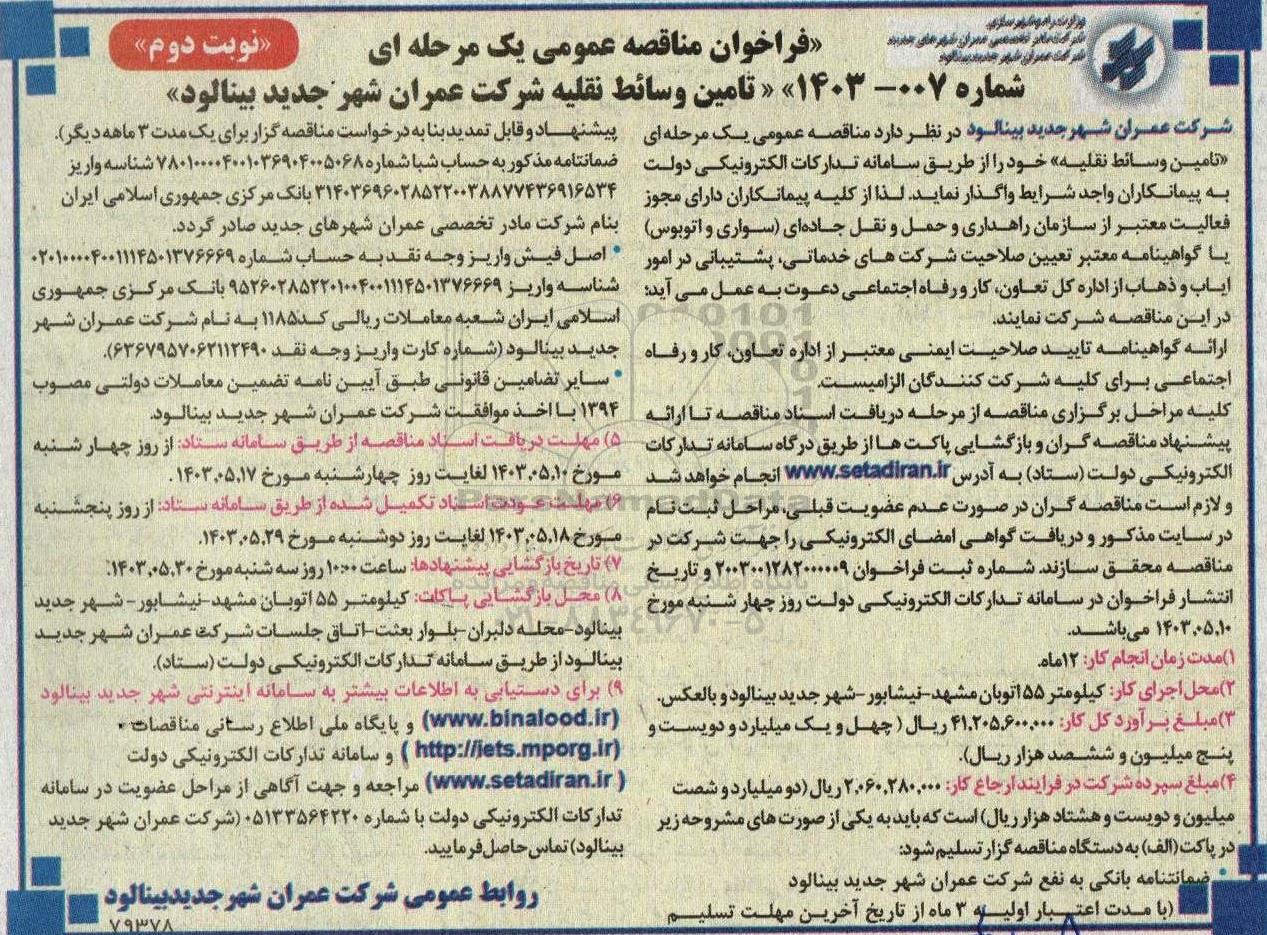 وزارت راه و شهرسازی
شرکت مادر تخصصی عمران شهرهای جدید
شرکت عمران شهر جدید بینالود
«فراخوان مناقصه عمومی یک مرحله ای
شماره ۰۰۷-۱۴۰۳» « تامین وسائط نقلیه شرکت عمران شهر جدید بینالود»
«نوبت دوم»
شرکت عمران شهر جدید بینالود در نظر دارد مناقصه عمومی یک مرحله ای
«تامین وسائط نقلیه» خود را از طریق سامانه تدارکات الکترونیکی دولت
به پیمانکاران واجد شرایط واگذار نماید. لذا از کلیه پیمانکاران دارای مجوز
فعالیت معتبر از سازمان راهداری و حمل و نقل جاده‌ای (سواری و اتوبوس)
یا گواهینامه معتبر تعیین صلاحیت شرکت های خدماتی، پشتیبانی در امور
ایاب و ذهاب از اداره کل تعاون، کار و رفاه اجتماعی دعوت به عمل می آید؛
در این مناقصه شرکت نمایند.
ارائه گواهینامه تایید صلاحیت ایمنی معتبر از اداره تعاون، کار و رفاه
اجتماعی برای کلیه شرکت کنندگان الزامیست.
کلیه مراحل برگزاری مناقصه از مرحله دریافت اسناد مناقصه تا ارائه
پیشنهاد مناقصه گران و بازگشایی پاکت ها از طریق درگاه سامانه تدارکات
الکترونیکی دولت (ستاد) به آدرس www.setadiran.ir انجام خواهد شد
و لازم است مناقصه گران در صورت عدم عضویت قبلی، مراحل ثبت نام
در سایت مذکور و دریافت گواهی امضای الکترونیکی را جهت شرکت در
مناقصه محقق سازند. شماره ثبت فراخوان ۲۰۰۳۰۰۱۲۸۲۰۰۰۰۰۹ و تاریخ
انتشار فراخوان در سامانه تدارکات الکترونیکی دولت روز چهار شنبه مورخ
۱۴۰۳,۰۵,۱۰ می‌باشد.
۱)مدت زمان انجام کار: ۱۲ماه.
۲)محل اجرای کار: کیلومتر ۵۵ اتوبان مشهد-نیشابور -شهر جدید بینالود و بالعکس.
۳)مبلغ برآورد کل کار: ۴۱,۲۰۵,۶۰۰,۰۰۰ ریال ( چهل و یک میلیارد و دویست و
پنج میلیون و ششصد هزار ریال).
۴)مبلغ سپرده شرکت در فرایند ارجاع کار: ۲,۰۶۰,۲۸۰,۰۰۰ ریال (دو میلیارد و شصت
میلیون و دویست و هشتاد هزار ریال) است که باید به یکی از صورت های مشروحه زیر
در پاکت (الف) به دستگاه مناقصه گزار تسلیم شود:
• ضمانتنامه بانکی به نفع شرکت عمران شهر جدید بینالود
(با مدت اعتبار اولیه ۳ ماه از تاریخ آخرین مهلت تسلیم
پیشنهاد و قابل تمدید بنا به درخواست مناقصه گزار برای یک مدت ۳ ماهه دیگر).
ضمانتنامه مذکور به حساب شبا شماره ۷۸۰۱۰۰۰۰۴۰۰۱۰۳۶۹۰۴۰۰۵۰۶۸ شناسه واریز
۳۱۴۰۳۶۹۶۰۲۸۵۲۲۰۰۳۸۸۷۷۴۳۶۹۱۶۵۳۴ بانک مرکزی جمهوری اسلامی ایران
بنام شرکت مادر تخصصی عمران شهرهای جدید صادر گردد.
• اصل فیش واریز وجه نقد به حساب شماره ۰۲۰۱۰۰۰۰۴۰۰۱۱۱۴۵۰۱۳۷۶۶۶۹
شناسه واریز ۹۵۲۶۰۲۸۵۲۲۰۱۰۰۴۰۰۱۱۱۴۵۰۱۳۷۶۶۶۹ بانک مرکزی جمهوری
اسلامی ایران شعبه معاملات ریالی کد۱۱۸۵ به نام شرکت عمران شهر
جدید بینالود (شماره کارت واریز وجه نقد ۶۳۶۷۹۵۷۰۶۲۱۱۲۴۹۰).
• سایر تضامین قانونی طبق آیین نامه تضمین معاملات دولتی مصوب
۱۳۹۴ با اخذ موافقت شرکت عمران شهر جدید بینالود.
۵) مهلت دریافت اسناد مناقصه از طریق سامانه ستاد: از روز چهار شنبه
مورخ ۱۴۰۳,۰۵,۱۰ لغایت روز چهارشنبه مورخ ۱۴۰۳,۰۵,۱۷ .
۶) مهلت عودت اسناد تکمیل شده از طریق سامانه ستاد: از روز پنجشنبه
مورخ ۱۴۰۳,۰۵,۱۸ لغایت روز دوشنبه مورخ ۱۴۰۳,۰۵,۲۹.
۷) تاریخ بازگشایی پیشنهادها: ساعت ۱۰:۰۰ روز سه شنبه مورخ ۱۴۰۳,۰۵,۳۰.
۸) محل بازگشایی پاکات: کیلومتر ۵۵ اتوبان مشهد-نیشابور- شهر جدید
بینالود-محله دلبران-بلوار بعثت-اتاق جلسات شرکت عمران شهر جدید
بینالود از طریق سامانه تدارکات الکترونیکی دولت (ستاد).
۹) برای دستیابی به اطلاعات بیشتر به سامانه اینترنتی شهر جدید بینالود
(www.binalood.ir) و پایگاه ملی اطلاع رسانی مناقصات
(http://iets.mporg.ir ) و سامانه تدارکات الکترونیکی دولت
(www.setadiran.ir ) مراجعه و جهت آگاهی از مراحل عضویت در سامانه
تدارکات الکترونیکی دولت با شماره ۰۵۱۳۳۵۶۴۲۲۰ (شرکت عمران شهر جدید
بینالود) تماس حاصل فرمایید.
روابط عمومی شرکت عمران شهر جدید بینالود
۷۹۳۷۸
ParsNamadData
۰۲۱-۸۸۳۴۹۶۷۰-۵